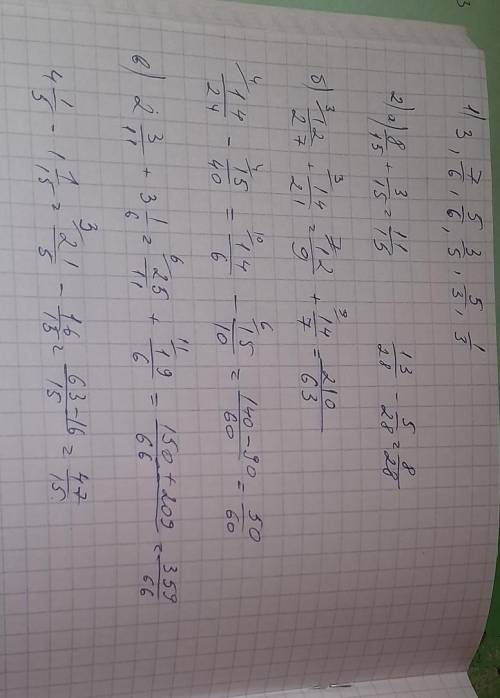 1) 3, 7/6, 5/6, 3/5, 5/3, 1/3
2) а) 8/15 + 3/15 = 11/15 13/28 - 5/28 = 8/28
б) 3/ 12/27 + 3/ 14/21 = 7/ 12/9 + 9/ 14/7 = 210/63
4/ 14/24 - 4/ 15/40 = 10/ 14/6 - 6/ 15/10 = (140-90)/60 = 50/60
в) 2 3/11 + 3 1/6 = 6/ 25/11 + 11/ 19/6 = (150+209)/66 = 359/66
4 1/5 - 1 1/15 = 3/ 21/5 - 16/15 = (63-16)/15 = 47/15